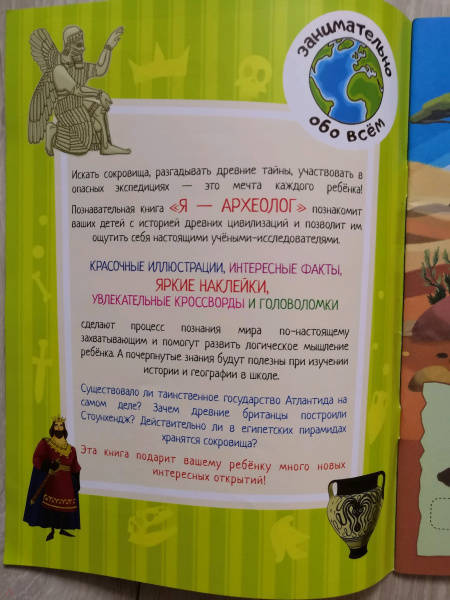 занимательно
обо всём
Искать сокровища, разгадывать древние тайны, участвовать в
опасных экспедициях — это мечта каждого ребёнка!
Познавательная книга «Я — АРХЕОЛОГ» познакомит
ваших детей с историей древних цивилизаций и позволит им
ощутить себя настоящими учёными-исследователями.
КРАСОЧНЫЕ ИЛЛЮСТРАЦИИ, ИНТЕРЕСНЫЕ ФАКТЫ,
ЯРКИЕ НАКЛЕЙКИ,
УВЛЕКАТЕЛЬНЫЕ КРОССВОРДЫ И ГОЛОВОЛОМКИ
сделают процесс познания мира по-настоящему
захватывающим и помогут развить логическое мышление
ребёнка. А почерпнутые знания будут полезны при изучении
истории и географии в школе.
Существовало ли таинственное государство Атлантида на
самом деле? Зачем древние британцы построили
Стоунхендж? Действительно ли в египетских пирамидах
хранятся сокровища?
Эта книга подарит вашему ребёнку много новых
интересных открытий!